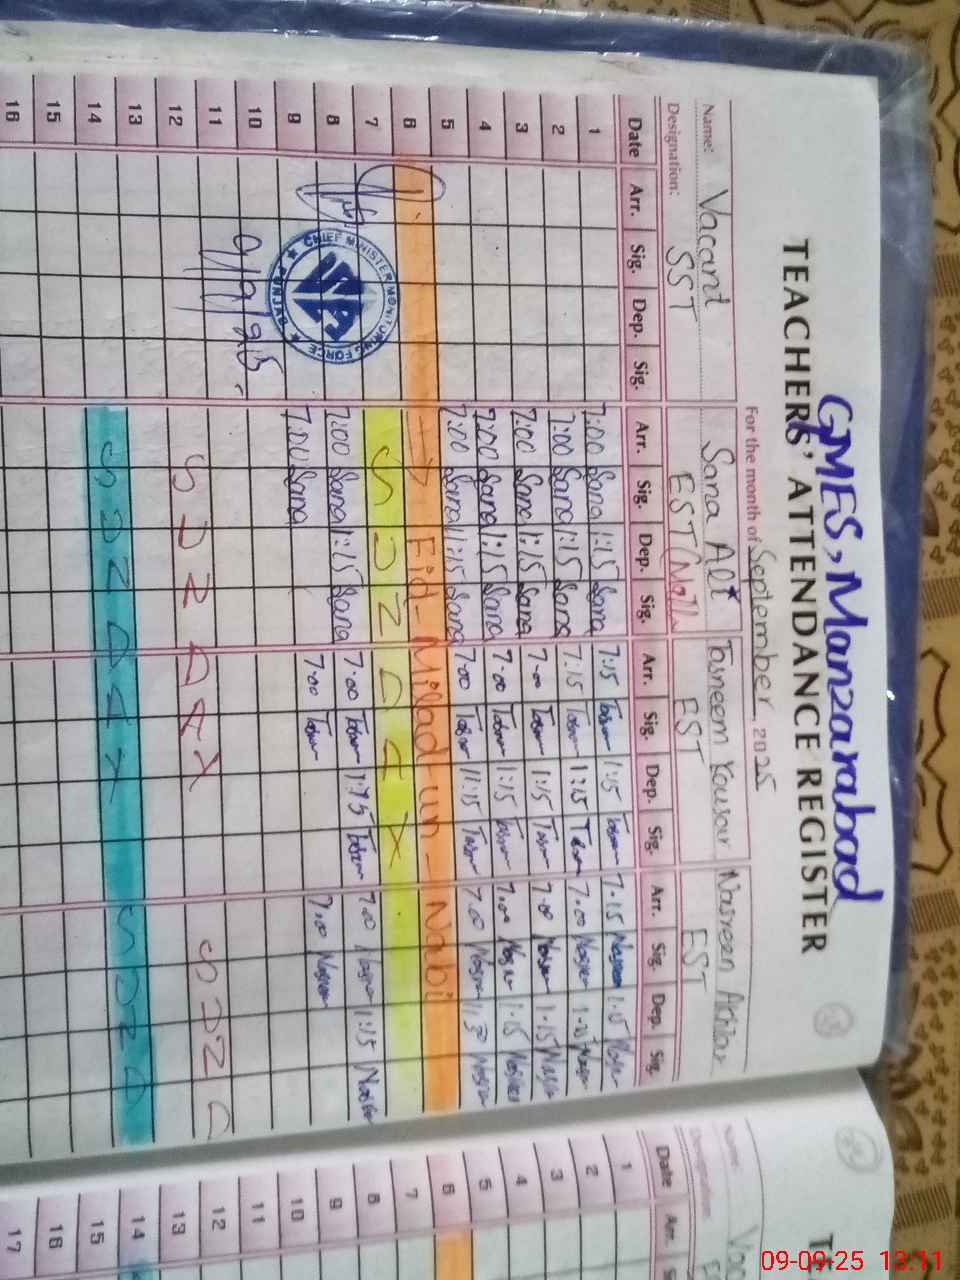 GMES, Manzarabad
TEACHERS' ATTENDANCE REGISTER
For the month of September, 2025
Name: Vacant Sana Tasneem Kousar Nasreen Akhtar
Designation: SST EST EST EST
Date Arr. Sig. Dep. Sig. Arr. Sig. Dep. Sig. Arr. Sig. Dep. Sig. Arr. Sig. Dep. Sig.
1 7:00 Sana 1:15 Sana 7:15 1:15 7.15 1.15
2 7:00 Sana 1:15 Sana 7:15 1:15 7.00
3 7:00 Sana 1:15 Sana 7.00 1:15 7.00 1.15
4 7:00 Sana 1:15 Sana 7.00 1:15 7.00 1.15
5 7:00 Sana 1:15 Sana 7.00 1:15 7.00
6 Eid-Milad-un-Nabi
7 S U N D A Y
8 7:00 Sana 1:15 Sana 7.00 1:15 7.00 1:15
9 7:00 Sana 7.00 7.00
10
11
12
13
14
15
16
CHIEF MINISTER MONITORING FORCE
PUNJAB
9/9/25
Date Arr.
1
2
3
4
5
6
7
8
9
10
11
12
13
14
15
16
17
09-09-25 13:11